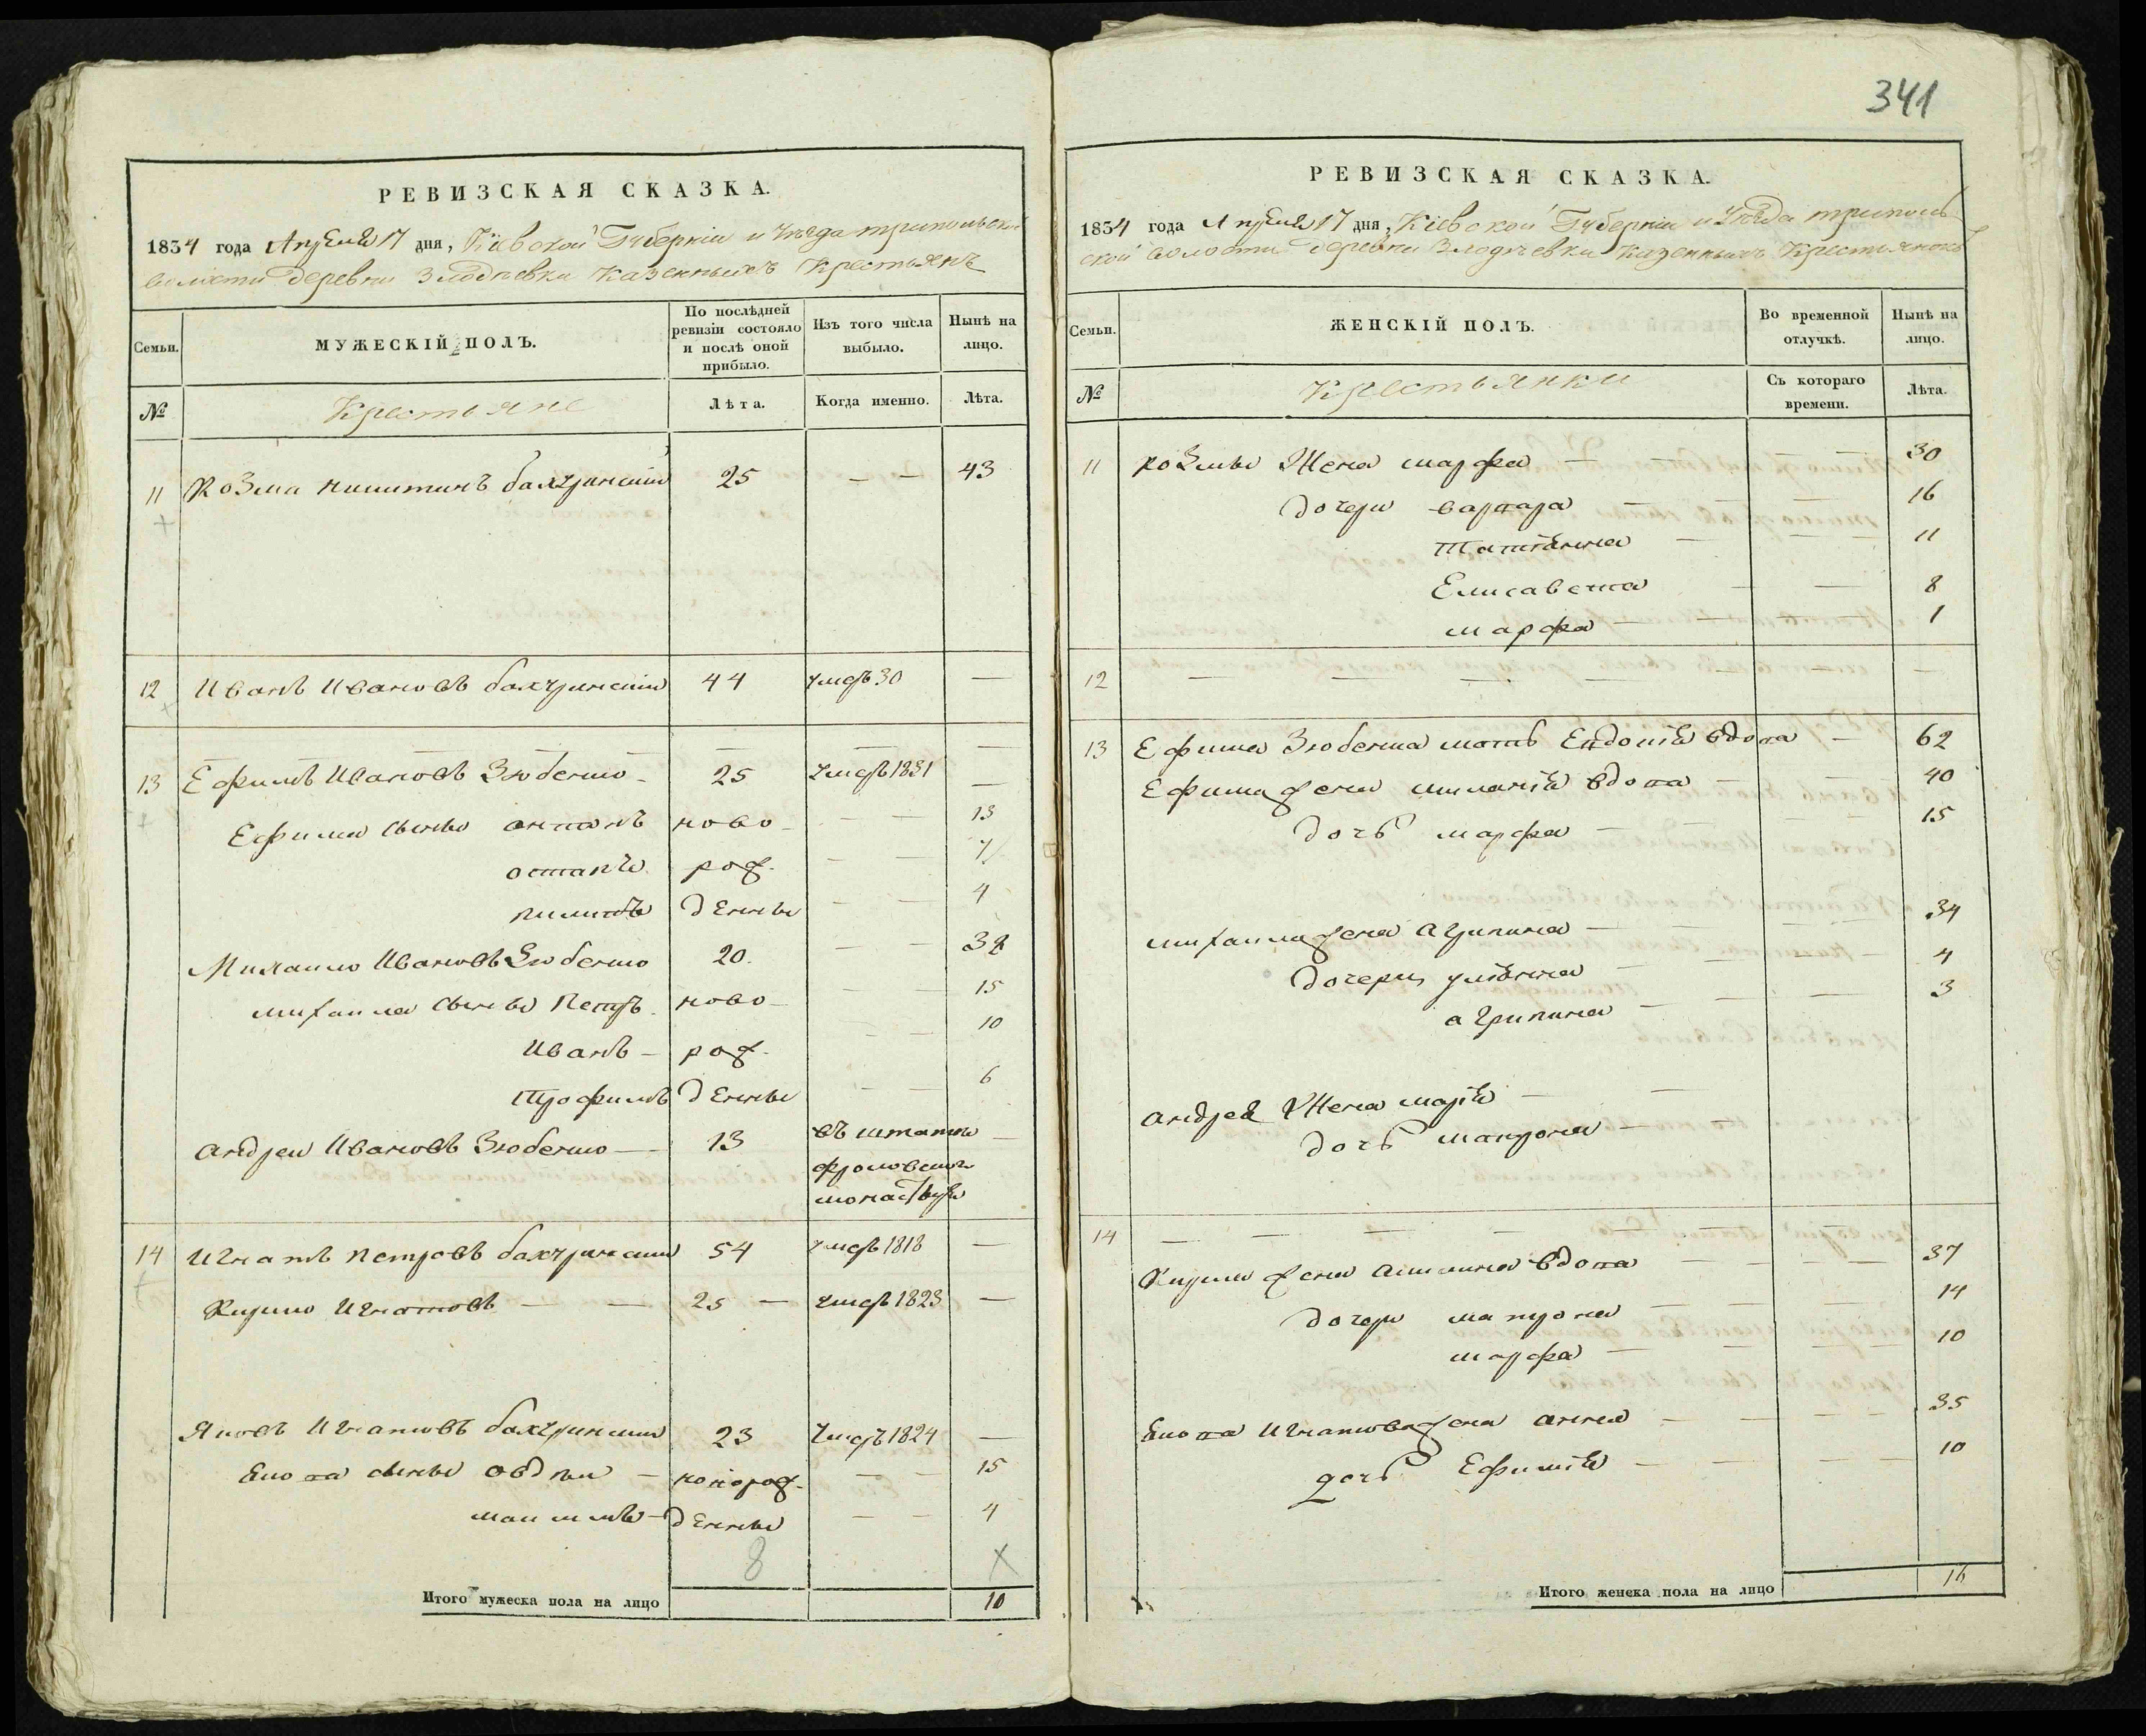 341
РЕВИЗСКАЯ СКАЗКА.
1834 года Апреля 17 дня, Кіевской Губерніи и Уѣзда трипольской
волости деревни Злодѣевки казенныхъ крестьянъ
Семьи.
МУЖЕСКІЙ ПОЛЪ.
По послѣдней ревизіи состояло и послѣ оной прибыло.
Изъ того числа выбыло.
Нынѣ на лицо.
№
Крестьяне
Лѣта.
Когда именно.
Лѣта.
11 Козма никитинъ бахчринскій 25 — — 43
12 Иванъ Ивановъ бахчринскій 44 умеръ 30 —
— — — — —
13 Ефимъ Ивановъ Зюбенко 25 умеръ 1831 —
Ефима сыны антонъ ново — — 13
остапъ рож. — — 7
пилипъ денны — — 4
Михаило Ивановъ Зюбенко 20. — — 38
михаила сыны Петръ ново — — 15
Иванъ — рож. — — 10
Трофимъ денны — — 6
андрей Ивановъ Зюбенко — 13 въ штатѣ —
фроловскаго
монастыря
14 Игнатъ петровъ бахчринскій 54 умеръ 1818 —
Кирило Игнатовъ — — 25 — умеръ 1823 —
Яковъ Игнатовъ бахчринскій 23 Умеръ 1824 —
Якова сыны авдѣй — новорож. — — 15
— денны — — 4
8 X
Итого мужеска пола на лицо 10
РЕВИЗСКАЯ СКАЗКА.
1834 года Апреля 17 дня, Кіевской Губерніи и Уѣзда триполь
ской волости деревни Злодѣевки казенныхъ Крестьянокъ
Семьи.
ЖЕНСКІЙ ПОЛЪ.
Во временной отлучкѣ.
Нынѣ на лицо.
№
Крестьянки
Съ котораго времени.
Лѣта.
11 козмы Жена марфа — — — 30
дочери варвара — — 16
Татіанна — — — 11
Елисавета — — 8
марфа — — — — 1
12 — — — — — — — —
13 Ефима Зюбенка мать Евдокія вдова — 62
Ефима жена миланія вдова — — 40
дочь марфа — — — — 15
михаила жена агрипина — — — 34
дочери уліанна — — — 4
агрипина — — — 3
андрея Жена марія — —
дочь матрона — —
14 — — — — — — —
Кирила жена акилина вдова — — — — 37
дочери матрона — — — 14
марфа — — — — 10
Якова Игнатова жена анна — — — — 35
дочь Ефимія — — — — 10
Итого женска пола на лицо 16